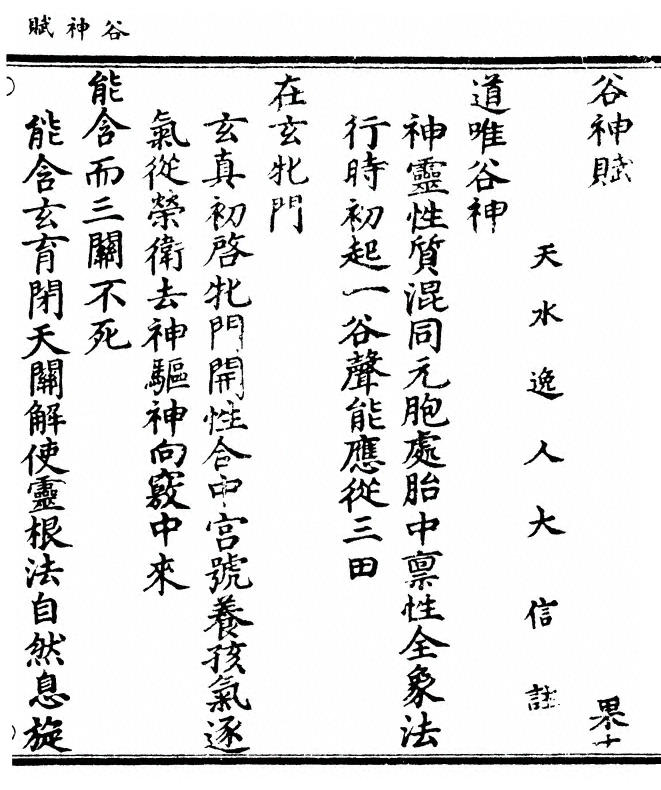 谷神賦
谷神賦　畁十
天水逸人大信註
道唯谷神
神靈性質混同元胞處胎中稟性全象法
行時初起一谷聲能應從三田
在玄牝門
玄真初啓牝門開性合中宮號養孩氣逐
氣從榮衛去神驅神向竅中來
能含而三關不死
能含玄育閉天關解使靈根法自然息旋